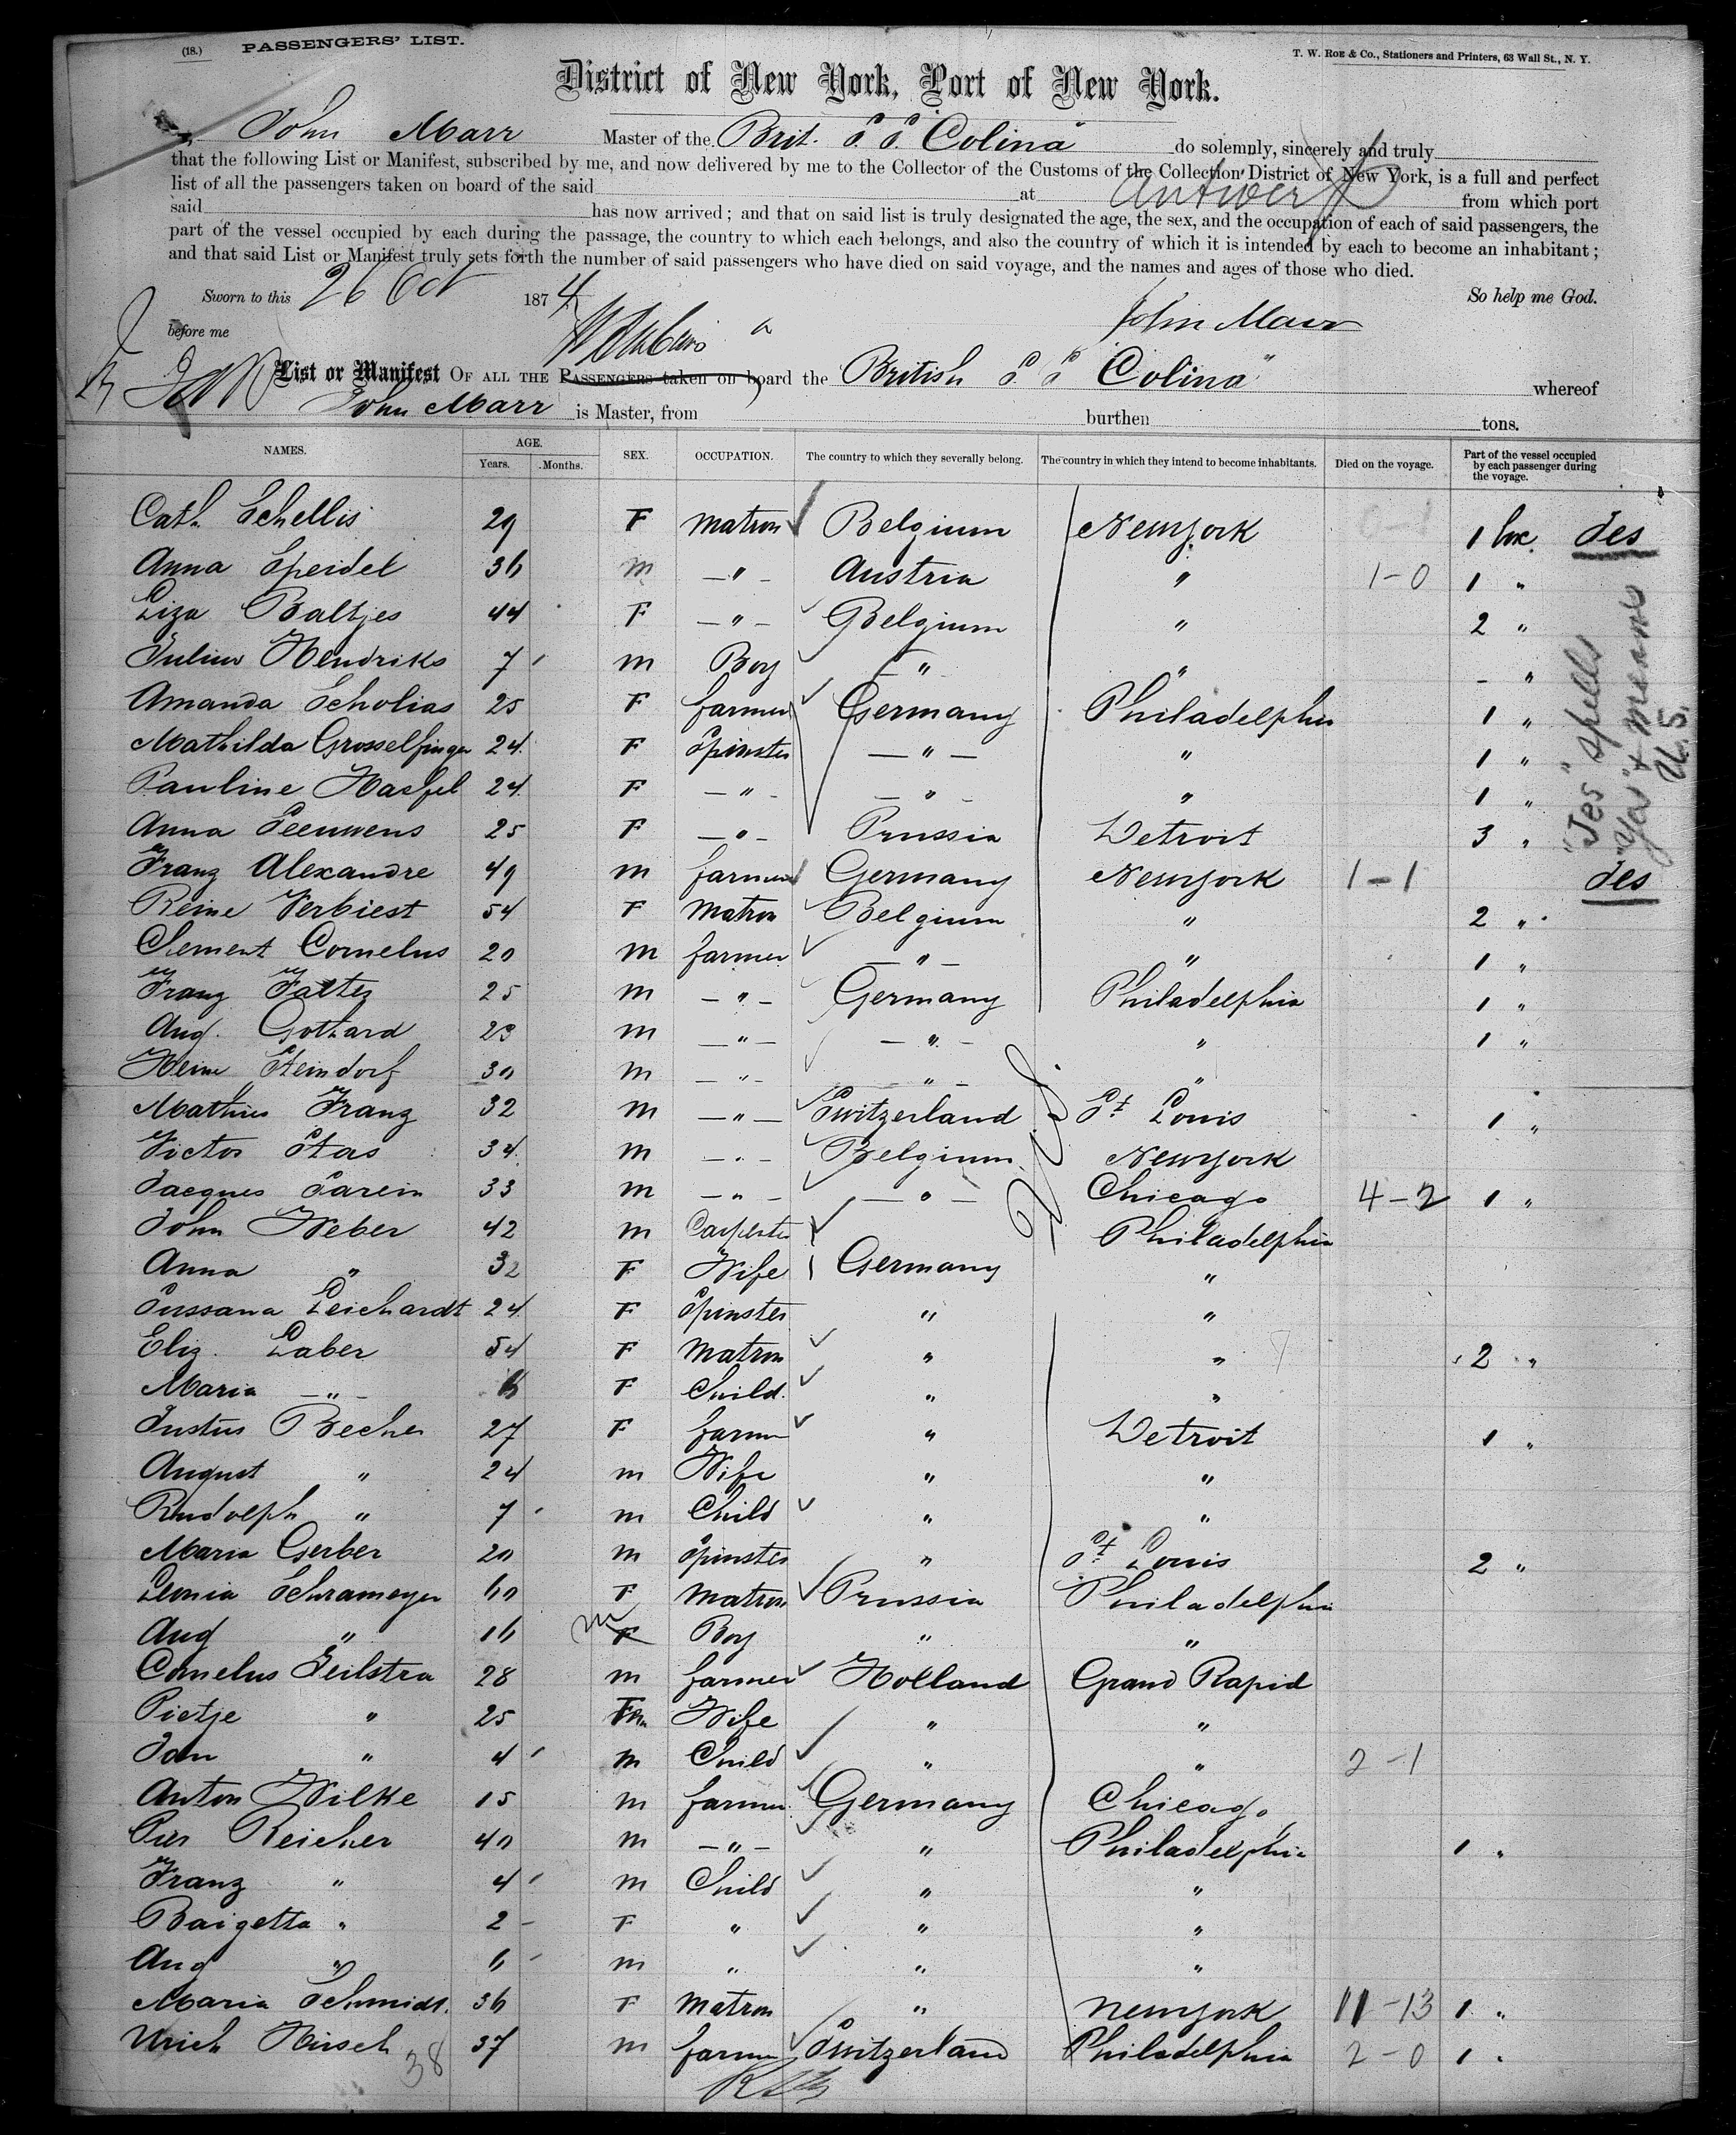 (18.) PASSENGERS' LIST.
T. W. ROE & CO., Stationers and Printers, 63 Wall St., N. Y.
District of New York, Port of New York.
John Marr Master of the Brit. S. S. Colina do solemnly, sincerely and truly
that the following List or Manifest, subscribed by me, and now delivered by me to the Collector of the Customs of the Collection District of New York, is a full and perfect
list of all the passengers taken on board of the said at Antwerp from which port
said has now arrived; and that on said list is truly designated the age, the sex, and the occupation of each of said passengers, the
part of the vessel occupied by each during the passage, the country to which each belongs, and also the country of which it is intended by each to become an inhabitant;
and that said List or Manifest truly sets forth the number of said passengers who have died on said voyage, and the names and ages of those who died.
Sworn to this 26 Oct 1874 So help me God.
before me John Marr
List or Manifest OF ALL THE PASSENGERS taken on board the British S S "Colina" whereof
John Marr is Master, from burthen tons.
NAMES. AGE. Years. Months. SEX. OCCUPATION. The country to which they severally belong. The country in which they intend to become inhabitants. Died on the voyage. Part of the vessel occupied by each passenger during the voyage.
Cath Schellis 29 F Matron Belgium New York 1 box Jes
Anna Speidel 36 m " Austria " 1-0 1 "
Liza Baltjes 44 F " Belgium " 2 "
Julius Hendriks 7 m Boy " " - "
Amanda Scholias 25 F farmer Germany Philadelphia 1 "
Mathilda Grosselfinger 24 F Spinster " " 1 "
Pauline Hasfel 24 F " " " 1 "
Anna Peeuwens 25 F " Prussia Detroit 3 "
Franz Alexandre 49 m farmer Germany New York 1-1 Jes
Reine Verbiest 54 F Matron Belgium " 2 "
Clement Cornelus 20 m farmer " " 1 "
Franz Faltez 25 m " Germany Philadelphia 1 "
Aug. Gothard 23 m " " " 1 "
Heinr Steindorf 30 m " " "
Mathies Franz 32 m " Switzerland St Louis 1 "
Victor Stas 34 m " Belgium New York
Jacques Parein 33 m " " Chicago 4-2 1 "
John Weber 42 m Carpenter Philadelphia
Anna " 32 F Wife Germany "
Sussana Leichardt 24 F Spinster " "
Eliz. Laber 54 F Matron " " 2 "
Maria " 6 F Child " "
Justus Becher 27 F farmer " Detroit 1 "
August " 24 m Wife " "
Rudolph " 7 m Child " "
Maria Gerber 20 m Spinster " St Louis 2 "
Leonia Schrameyer 60 F Matron Prussia Philadelphia
Aug " 16 m Boy " "
Cornelus Zeilstra 28 m farmer Holland Grand Rapid
Pietje " 25 F Wife " "
Jan " 4 m Child " " 2-1
Anton Wilke 15 m farmer Germany Chicago
Pier Reicher 40 m " " Philadelphia 1 "
Franz " 4 m Child " "
Baigetta " 2 F " " "
Aug " 6 m " " "
Maria Schmidt 36 F Matron " New York 11-13 1 "
Urich Hirsch 37 m farmer Switzerland Philadelphia 2-0 1 "
38
"Jes" spells
"Yes" & means
U.S.